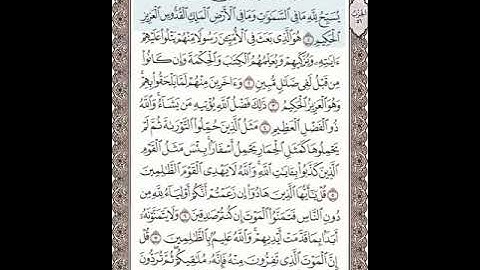 يُسَبِّحُ لِلَّهِ مَا فِي ٱلسَّمَٰوَٰتِ وَمَا فِي ٱلۡأَرۡضِ ٱلۡمَلِكِ ٱلۡقُدُّوسِ ٱلۡعَزِيزِ
ٱلۡحَكِيمِ ١ هُوَ ٱلَّذِي بَعَثَ فِي ٱلۡأُمِّيِّـۧنَ رَسُولٗا مِّنۡهُمۡ يَتۡلُواْ عَلَيۡهِمۡ
ءَايَٰتِهِۦ وَيُزَكِّيهِمۡ وَيُعَلِّمُهُمُ ٱلۡكِتَٰبَ وَٱلۡحِكۡمَةَ وَإِن كَانُواْ
مِن قَبۡلُ لَفِي ضَلَٰلٖ مُّبِينٖ ٢ وَءَاخَرِينَ مِنۡهُمۡ لَمَّا يَلۡحَقُواْ بِهِمۡۚ
وَهُوَ ٱلۡعَزِيزُ ٱلۡحَكِيمُ ٣ ذَٰلِكَ فَضۡلُ ٱللَّهِ يُؤۡتِيهِ مَن يَشَآءُۚ وَٱللَّهُ
ذُو ٱلۡفَضۡلِ ٱلۡعَظِيمِ ٤ مَثَلُ ٱلَّذِينَ حُمِّلُواْ ٱلتَّوۡرَىٰةَ ثُمَّ لَمۡ
يَحۡمِلُوهَا كَمَثَلِ ٱلۡحِمَارِ يَحۡمِلُ أَسۡفَارَۢاۚ بِئۡسَ مَثَلُ ٱلۡقَوۡمِ
ٱلَّذِينَ كَذَّبُواْ بِـَٔايَٰتِ ٱللَّهِۚ وَٱللَّهُ لَا يَهۡدِي ٱلۡقَوۡمَ ٱلظَّٰلِمِينَ
٥ قُلۡ يَٰٓأَيُّهَا ٱلَّذِينَ هَادُوٓاْ إِن زَعَمۡتُمۡ أَنَّكُمۡ أَوۡلِيَآءُ لِلَّهِ مِن
دُونِ ٱلنَّاسِ فَتَمَنَّوُاْ ٱلۡمَوۡتَ إِن كُنتُمۡ صَٰدِقِينَ ٦ وَلَا يَتَمَنَّوۡنَهُۥٓ
أَبَدَۢا بِمَا قَدَّمَتۡ أَيۡدِيهِمۡۚ وَٱللَّهُ عَلِيمُۢ بِٱلظَّٰلِمِينَ ٧ قُلۡ
إِنَّ ٱلۡمَوۡتَ ٱلَّذِي تَفِرُّونَ مِنۡهُ فَإِنَّهُۥ مُلَٰقِيكُمۡۖ ثُمَّ تُرَدُّونَ